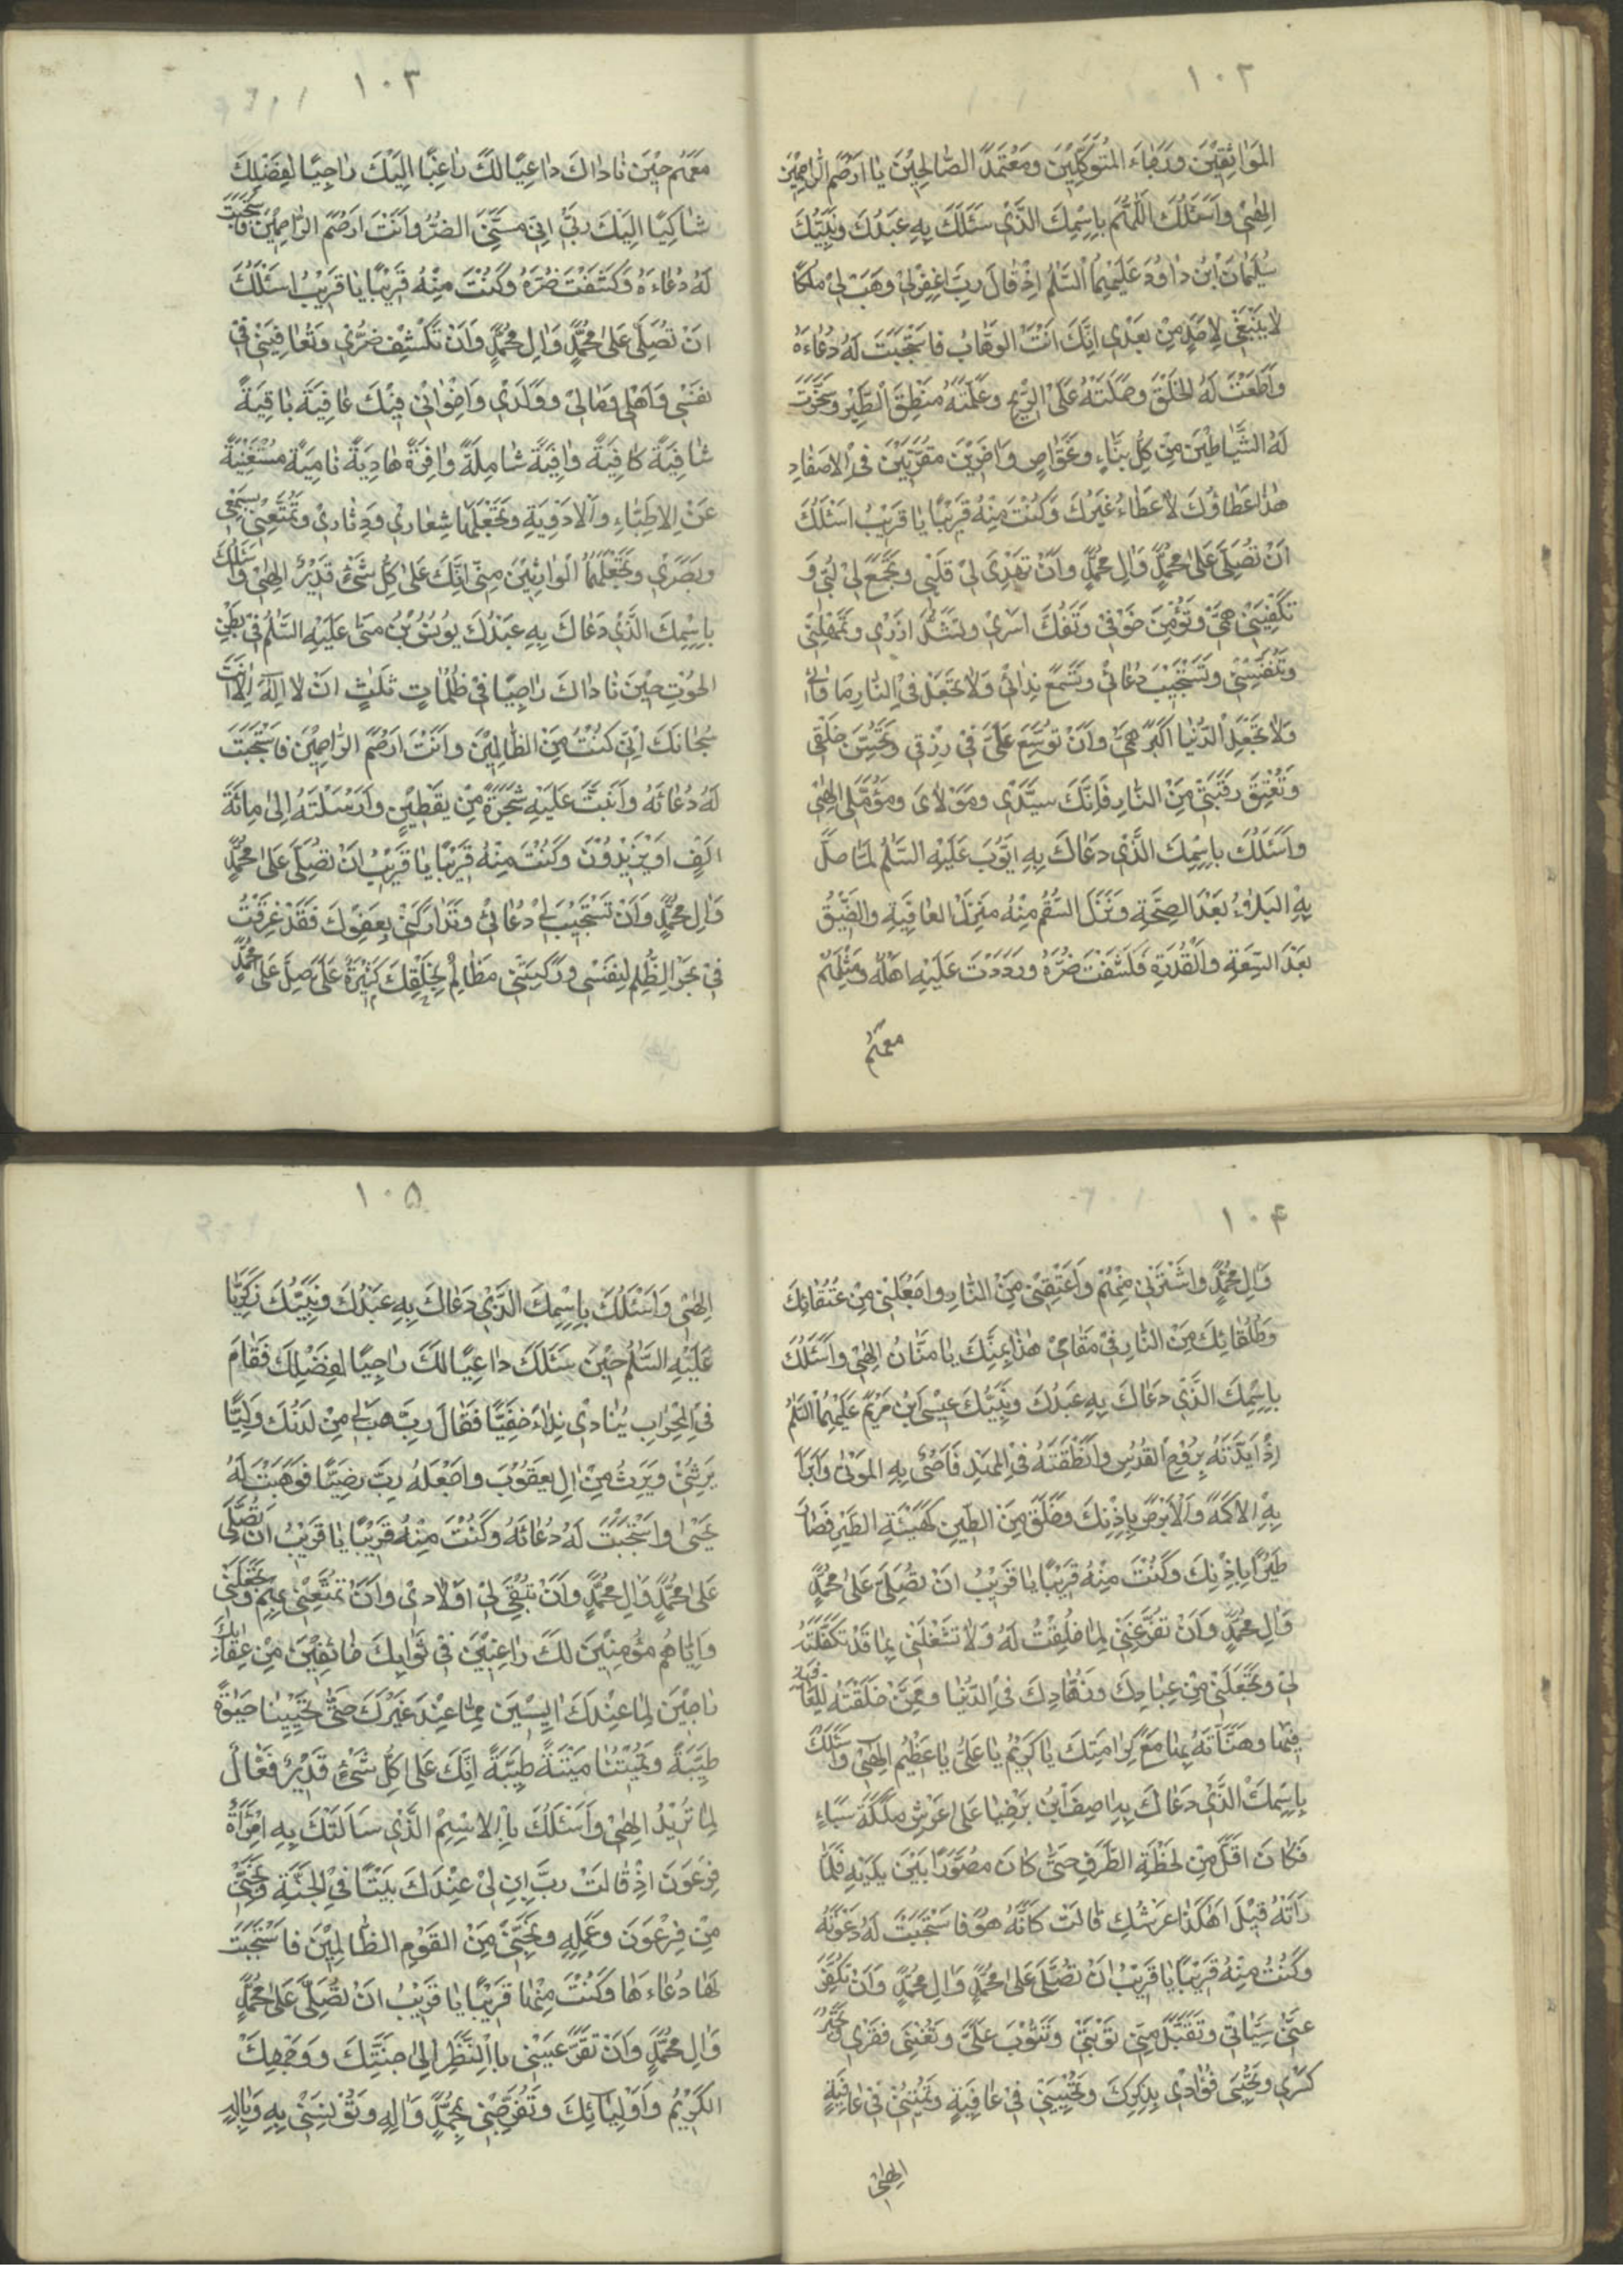 ١٠٢
المَوَاثِقِيْنَ وَرَجَاءَ المُتَوَكِّلِيْنَ وَمُعْتَمَدَ الصَّالِحِيْنَ يَا اَرْحَمَ الرَّاحِمِيْنَ
اِلٰهِيْ وَاَسْئَلُكَ اللّٰهُمَّ بِاسْمِكَ الَّذِيْ سَئَلَكَ بِهِ عَبْدُكَ وَنَبِيُّكَ
سُلَيْمَانُ ابْنُ دَاوُدَ عَلَيْهِمَا السَّلٰمُ اِذْ قَالَ رَبِّ اغْفِرْ لِيْ وَهَبْ لِيْ مُلْكًا
لَا يَنْبَغِيْ لِاَحَدٍ مِنْ بَعْدِيْ اِنَّكَ اَنْتَ الوَهَّابُ فَاسْتَجَبْتَ لَهُ دُعَاءَهُ
وَاَطَعْتَ لَهُ الخَلْقَ وَحَمَلْتَهُ عَلَى الرِّيْحِ وَعَلَّمْتَهُ مَنْطِقَ الطَّيْرِ وَسَخَّرْتَ
لَهُ الشَّيَاطِيْنَ مِنْ كُلِّ بَنَّاءٍ وَغَوَّاصٍ وَاٰخَرِيْنَ مُقَرَّنِيْنَ فِي الاَصْفَادِ
هٰذَا عَطَاؤُكَ لَا عَطَاءُ غَيْرِكَ وَكُنْتَ مِنْهُ قَرِيْبًا يَا قَرِيْبُ اَسْئَلُكَ
اَنْ تُصَلِّيَ عَلٰى مُحَمَّدٍ وَاٰلِ مُحَمَّدٍ وَاَنْ تَهْدِيَ لِيْ قَلْبِيْ وَتَجْمَعَ لِيْ لُبِّيْ وَ
تَكْفِيَنِيْ هَمِّيْ وَتُؤْمِنَ خَوْفِيْ وَتَفُكَّ اَسْرِيْ وَتَشُدَّ اَزْرِيْ وَتُمْهِلَنِيْ
وَتُنَفِّسَنِيْ وَتَسْتَجِيْبَ دُعَائِيْ وَتَسْمَعَ نِدَائِيْ وَلَا تَجْعَلْ فِي النَّارِ مَاوَائِ
وَلَا تَجْعَلِ الدُّنْيَا اَكْبَرَ هَمِّيْ وَاَنْ تُوَسِّعَ عَلَيَّ فِيْ رِزْقِيْ وَتُحَسِّنَ خَلْقِيْ
وَتُعْتِقَ رَقَبَتِيْ مِنَ النَّارِ فَاِنَّكَ سَيِّدِيْ وَمَوْلَايَ وَمُؤَمَّلِيْ اِلٰهِيْ
وَاَسْئَلُكَ بِاسْمِكَ الَّذِيْ دَعَاكَ بِهِ اَيُّوْبُ عَلَيْهِ السَّلٰمُ لَمَّا حَلَّ
بِهِ البَلَاءُ بَعْدَ الصِّحَّةِ وَنَزَلَ السُّقْمُ مِنْهُ مَنْزِلَ العَافِيَةِ وَالضِّيْقُ
بَعْدَ السَّعَةِ وَالْقُدْرَةِ فَكَشَفْتَ ضُرَّهُ وَرَدَدْتَ عَلَيْهِ اَهْلَهُ وَمِثْلَهُمْ
مَعَهُمْ
١٠٣
مَعَهُمْ حِيْنَ نَادَاكَ دَاعِيًا لَكَ رَاغِبًا اِلَيْكَ رَاجِيًا لِفَضْلِكَ
شَاكِيًا اِلَيْكَ رَبِّ اِنِّيْ مَسَّنِيَ الضُّرُّ وَاَنْتَ اَرْحَمُ الرَّاحِمِيْنَ فَاسْتَجَبْتَ
لَهُ دُعَاءَهُ وَكَشَفْتَ ضُرَّهُ وَكُنْتَ مِنْهُ قَرِيْبًا يَا قَرِيْبُ اَسْئَلُكَ
اَنْ تُصَلِّيَ عَلٰى مُحَمَّدٍ وَاٰلِ مُحَمَّدٍ وَاَنْ تَكْشِفَ ضُرِّيْ وَتُعَافِيَنِيْ فِيْ
نَفْسِيْ وَاَهْلِيْ وَمَالِيْ وَوَلَدِيْ وَاِخْوَانِيْ فِيْكَ عَافِيَةً بَاقِيَةً
شَافِيَةً كَافِيَةً وَافِيَةً شَامِلَةً وَافِرَةً هَادِيَةً نَامِيَةً مُسْتَغْنِيَةً
عَنِ الاَطِبَّاءِ وَالْاَدْوِيَةِ وَتَجْعَلَهَا شِعَارِيْ وَدِثَارِيْ وَتُمَتِّعَنِيْ بِسَمْعِيْ
وَبَصَرِيْ وَتَجْعَلَهُمَا الْوَارِثَيْنِ مِنِّيْ اِنَّكَ عَلٰى كُلِّ شَيْئٍ قَدِيْرٌ اِلٰهِيْ وَاَسْئَلُكَ
بِاِسْمِكَ الَّذِيْ دَعَاكَ بِهِ عَبْدُكَ يُوْنُسُ بْنُ مَتّٰى عَلَيْهِ السَّلٰمُ فِيْ بَطْنِ
الحُوْتِ حِيْنَ نَادَاكَ رَاجِيًا فِيْ ظُلُمَاتٍ ثَلٰثٍ اَنْ لَا اِلٰهَ اِلَّا اَنْتَ
سُبْحَانَكَ اِنِّيْ كُنْتُ مِنَ الظَّالِمِيْنَ وَاَنْتَ اَرْحَمُ الرَّاحِمِيْنَ فَاسْتَجَبْتَ
لَهُ دُعَائَهُ وَاَنْبَتَّ عَلَيْهِ شَجَرَةً مِنْ يَقْطِيْنٍ وَاَرْسَلْتَهُ اِلٰى مِائَةِ
اَلْفٍ اَوْ يَزِيْدُوْنَ وَكُنْتَ مِنْهُ قَرِيْبًا يَا قَرِيْبُ اَنْ تُصَلِّيَ عَلٰى مُحَمَّدٍ
وَاٰلِ مُحَمَّدٍ وَاَنْ تَسْتَجِيْبَ لِيْ دُعَائِيْ وَتَدَارَكَنِيْ بِعَفْوِكَ فَقَدْ غَرِقْتُ
فِيْ بَحْرِ الظُّلْمِ لِنَفْسِيْ وَرَكِبَتْنِيْ مَظَالِمُ لِخَلْقِكَ كَثِيْرَةٌ عَلَيَّ صَلِّ عَلٰى مُحَمَّدٍ
١٠۴
وَاٰلِ مُحَمَّدٍ وَاشْتَرِنِيْ مِنْهُمْ وَاَعْتِقْنِيْ مِنَ النَّارِ وَاجْعَلْنِيْ مِنْ عُتَقَائِكَ
وَطُلَقَائِكَ مِنَ النَّارِ فِيْ مَقَامِيْ هٰذَا بِمَنِّكَ يَا مَنَّانُ اِلٰهِيْ وَاَسْئَلُكَ
بِاِسْمِكَ الَّذِيْ دَعَاكَ بِهِ عَبْدُكَ وَنَبِيُّكَ عِيْسَى ابْنُ مَرْيَمَ عَلَيْهِمَا السَّلٰمُ
اِذْ اَيَّدْتَهُ بِرُوْحِ القُدُسِ وَاَنْطَقْتَهُ فِي المَهْدِ فَاَحْيٰى بِهِ المَوْتٰى وَاَبْرَاَ
بِهِ الاَكْمَهَ وَالْاَبْرَصَ بِاِذْنِكَ وَخَلَقَ مِنَ الطِّيْنِ كَهَيْئَةِ الطَّيْرِ فَصَارَ
طَيْرًا بِاِذْنِكَ وَكُنْتَ مِنْهُ قَرِيْبًا يَا قَرِيْبُ اَنْ تُصَلِّيَ عَلٰى مُحَمَّدٍ
وَاٰلِ مُحَمَّدٍ وَاَنْ تُفَرِّغَنِيْ لِمَا خُلِقْتُ لَهُ وَلَا تَشْغَلَنِيْ بِمَا قَدْ تَكَفَّلْتَهُ
لِيْ وَتَجْعَلَنِيْ مِنْ عِبَادِكَ وَزُهَّادِكَ فِي الدُّنْيَا وَمِمَّنْ خَلَقْتَهُ لِلعَافِيَةِ
فِيْهَا وَهَنَّاْتَهُ بِهَا مَعَ كَرَامَتِكَ يَا كَرِيْمُ يَا عَلِيُّ يَا عَظِيْمُ اِلٰهِيْ وَاَسْئَلُكَ
بِاِسْمِكَ الَّذِيْ دَعَاكَ بِهِ اٰصِفُ ابْنُ بَرْخِيَا عَلٰى عَرْشِ مَلِكَةِ سَبَاءٍ
فَكَانَ اَقَلَّ مِنْ لَحْظَةِ الطَّرْفِ حَتّٰى كَانَ مُصَوَّرًا بَيْنَ يَدَيْهِ فَلَمَّا
رَاَتْهُ قِيْلَ اَهٰكَذَا عَرْشُكِ قَالَتْ كَاَنَّهُ هُوَ فَاسْتَجَبْتَ لَهُ دَعْوَتَهُ
وَكُنْتَ مِنْهُ قَرِيْبًا يَا قَرِيْبُ اَنْ تُصَلِّيَ عَلٰى مُحَمَّدٍ وَاٰلِ مُحَمَّدٍ وَاَنْ تُكَفِّرَ
عَنِّيْ سَيِّئَاتِيْ وَتَقْبَلَ مِنِّيْ تَوْبَتِيْ وَتَتُوْبَ عَلَيَّ وَتُغْنِيَ فَقْرِيْ وَتَجْبُرَ
كَسْرِيْ وَتُحْيِيَ فُؤَادِيْ بِذِكْرِكَ وَتُحْيِيَنِيْ فِيْ عَافِيَةٍ وَتُمِيْتَنِيْ فِيْ عَافِيَةٍ
اِلٰهِيْ
١٠۵
اِلٰهِيْ وَاَسْئَلُكَ بِاِسْمِكَ الَّذِيْ دَعَاكَ بِهِ عَبْدُكَ وَنَبِيُّكَ زَكَرِيَّا
عَلَيْهِ السَّلٰمُ حِيْنَ سَئَلَكَ دَاعِيًا لَكَ رَاجِيًا لِفَضْلِكَ فَقَامَ
فِي المِحْرَابِ يُنَادِيْ نِدَاءً خَفِيًّا فَقَالَ رَبِّ هَبْ لِيْ مِنْ لَدُنْكَ وَلِيًّا
يَرِثُنِيْ وَيَرِثُ مِنْ اٰلِ يَعْقُوْبَ وَاجْعَلْهُ رَبِّ رَضِيًّا فَوَهَبْتَ لَهُ
يَحْيٰى وَاسْتَجَبْتَ لَهُ دُعَائَهُ وَكُنْتَ مِنْهُ قَرِيْبًا يَا قَرِيْبُ اَنْ تُصَلِّيَ
عَلٰى مُحَمَّدٍ وَاٰلِ مُحَمَّدٍ وَاَنْ تُبْقِيَ لِيْ اَوْلَادِيْ وَاَنْ تُمَتِّعَنِيْ بِهِمْ وَتَجْعَلَنِيْ
وَاِيَّاهُمْ مُؤْمِنِيْنَ لَكَ رَاغِبِيْنَ فِيْ ثَوَابِكَ خَائِفِيْنَ مِنْ عِقَابِكَ
رَاجِيْنَ لِمَا عِنْدَكَ اٰيِسِيْنَ مِمَّا عِنْدَ غَيْرِكَ حَتّٰى تُحْيِيَنَا حَيٰوةً
طَيِّبَةً وَتُمِيْتَنَا مَيْتَةً طَيِّبَةً اِنَّكَ عَلٰى كُلِّ شَيْئٍ قَدِيْرٌ فَعَّالٌ
لِمَا تُرِيْدُ اِلٰهِيْ وَاَسْئَلُكَ بِاْلاِسْمِ الَّذِيْ سَاَلَتْكَ بِهِ امْرَاَةُ
فِرْعَوْنَ اِذْ قَالَتْ رَبِّ ابْنِ لِيْ عِنْدَكَ بَيْتًا فِي الجَنَّةِ وَنَجِّنِيْ
مِنْ فِرْعَوْنَ وَعَمَلِهِ وَنَجِّنِيْ مِنَ القَوْمِ الظَّالِمِيْنَ فَاسْتَجَبْتَ
لَهَا دُعَاءَهَا وَكُنْتَ مِنْهَا قَرِيْبًا يَا قَرِيْبُ اَنْ تُصَلِّيَ عَلٰى مُحَمَّدٍ
وَاٰلِ مُحَمَّدٍ وَاَنْ تُقِرَّ عَيْنِيْ بِالنَّظَرِ اِلٰى جَنَّتِكَ وَوَجْهِكَ
الكَرِيْمِ وَاَوْلِيَائِكَ وَتُفَرِّحَنِيْ بِمُحَمَّدٍ وَاٰلِهِ وَتُؤْنِسَنِيْ بِهِ وَبِاٰلِهِ